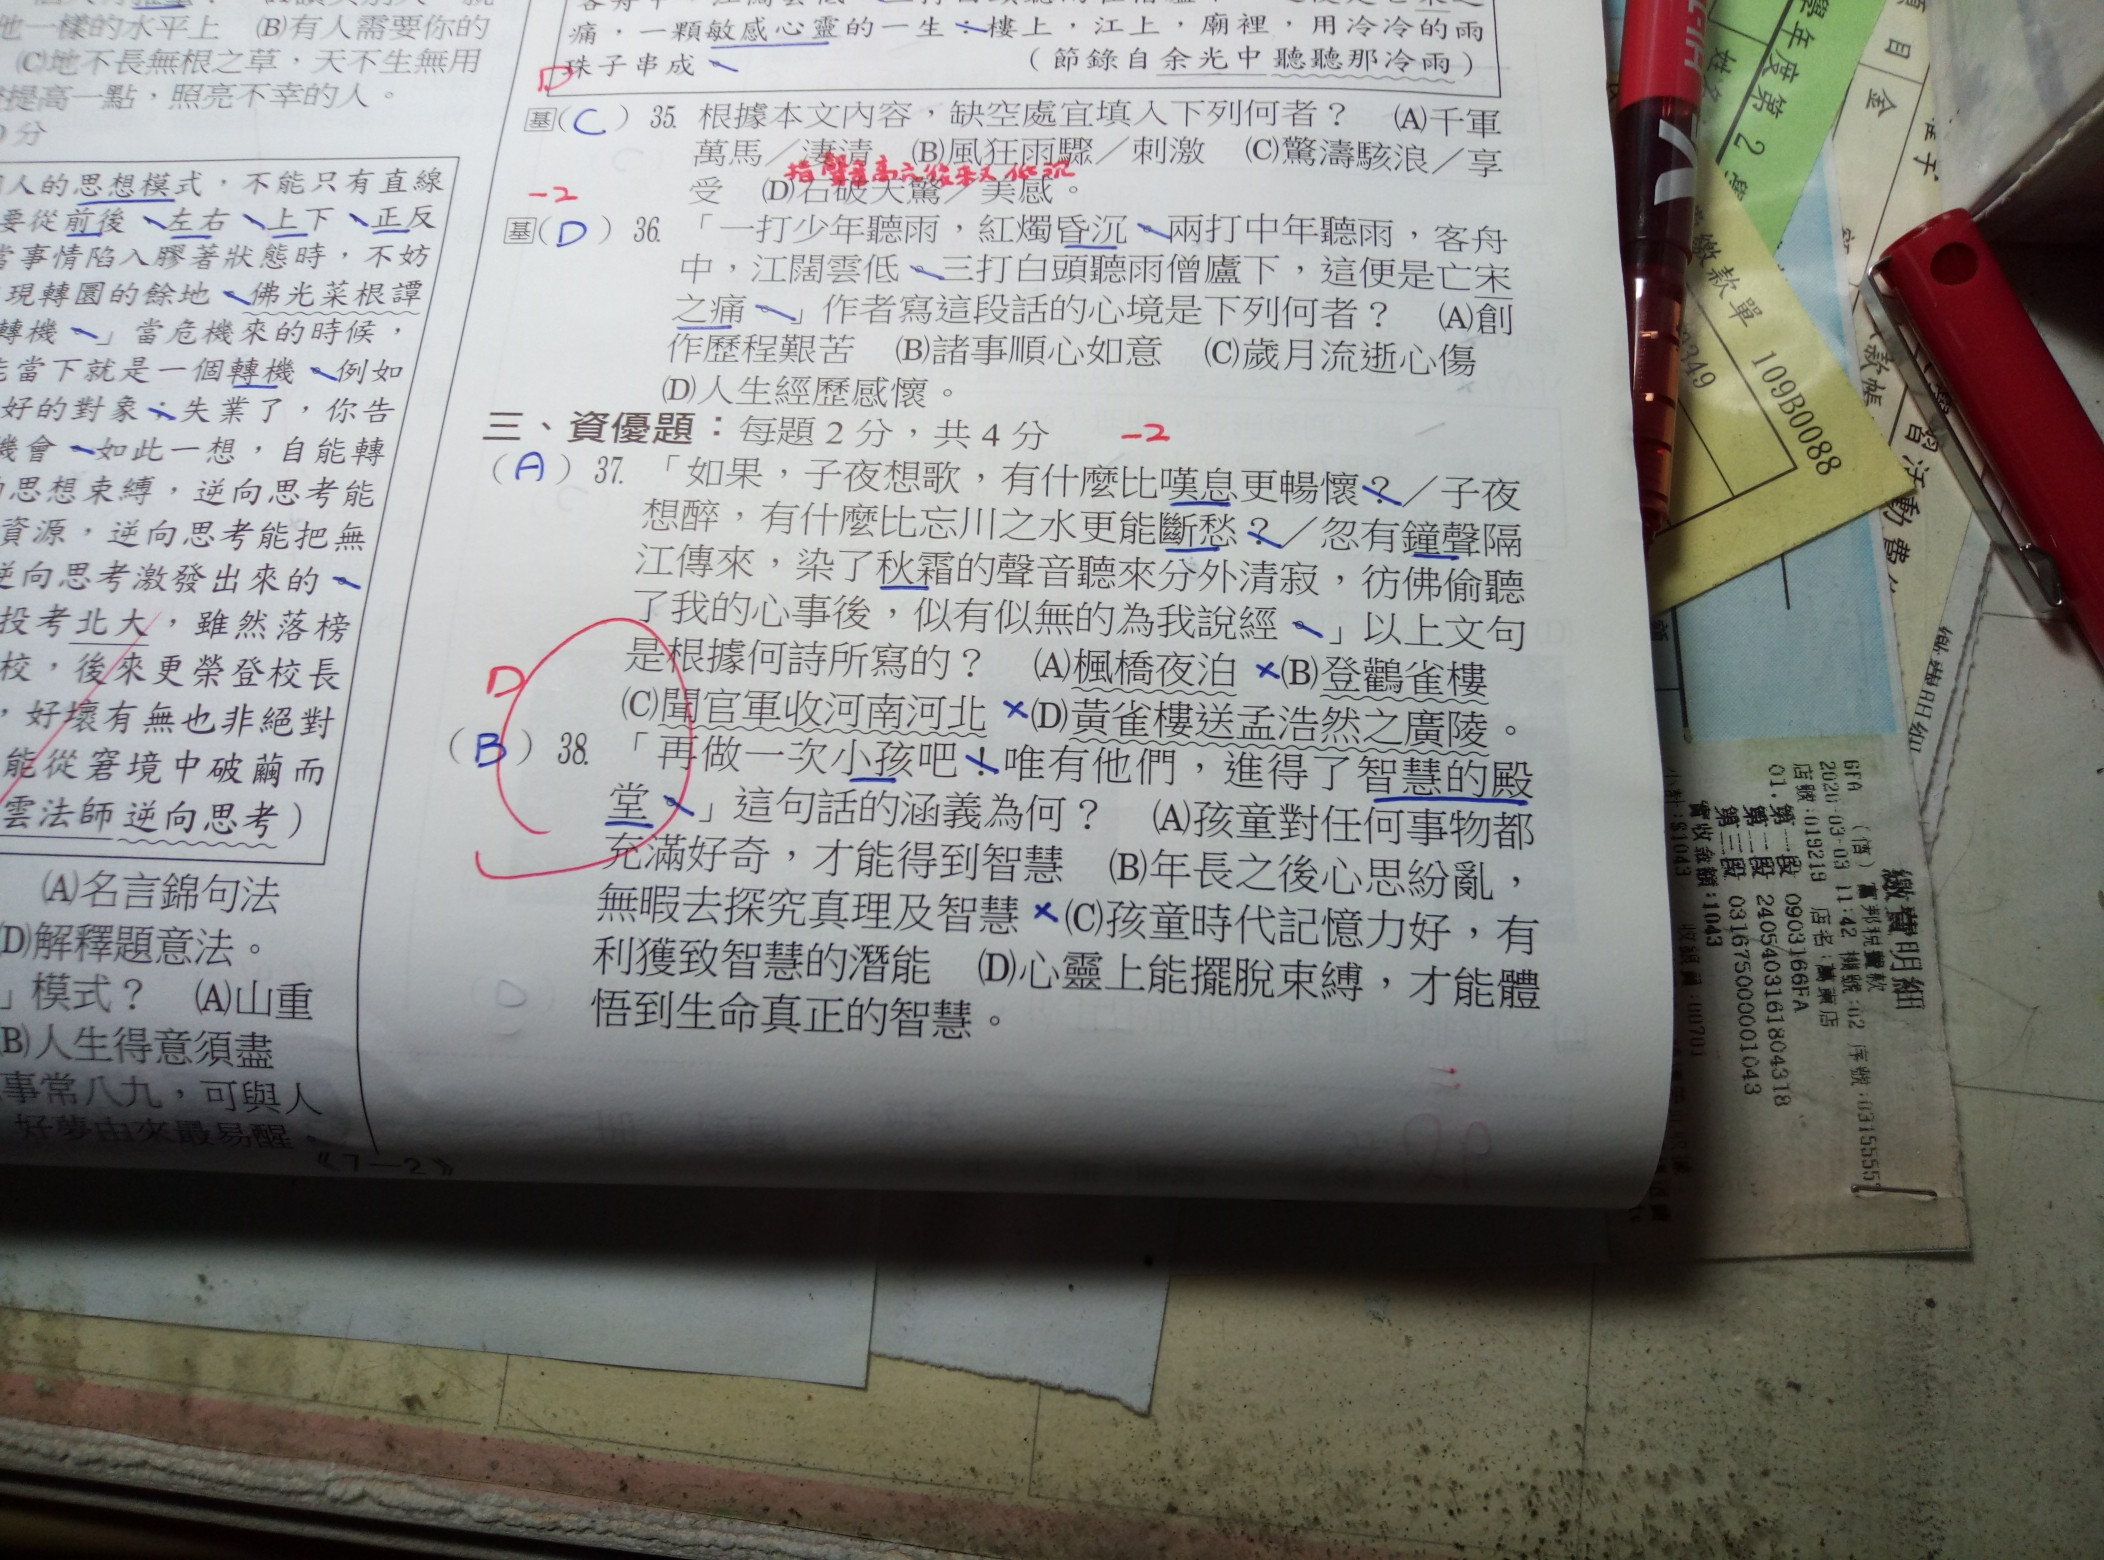 他一樣的水平上 (B)有人需要你的
(C)地不長無根之草,天不生無用
提高一點,照亮不幸的人。
分
人的思想模式,不能只有直線
要從前後、左右、上下、正反
當事情陷入膠著狀態時,不妨
現轉圜的餘地。佛光菜根譚
轉機。」當危機來的時候,
能當下就是一個轉機。例如
好的對象;失業了,你告
機會。如此一想,自能轉
思想束縛,逆向思考能
資源,逆向思考能把無
逆向思考激發出來的。
投考北大,雖然落榜
校,後來更榮登校長
,好壞有無也非絕對
能從窘境中破繭而
雲法師逆向思考)
(A)名言錦句法
(D)解釋題意法。
」模式? (A)山重
(B)人生得意須盡
事常八九,可與人
好夢由來最易醒。
《7-2》
痛,一顆敏感心靈的一生;樓上,江上,廟裡,用冷冷的雨
珠子串成。 (節錄自余光中聽聽那冷雨)
D
基(C) 35. 根據本文內容,缺空處宜填入下列何者? (A)千軍
萬馬/淒清 (B)風狂雨驟/刺激 (C)驚濤駭浪/享
受 (D)石破天驚/美感。
-2
基(D) 36. 「一打少年聽雨,紅燭昏沉。兩打中年聽雨,客舟
中,江闊雲低。三打白頭聽雨僧廬下,這便是亡宋
之痛。」作者寫這段話的心境是下列何者? (A)創
作歷程艱苦 (B)諸事順心如意 (C)歲月流逝心傷
(D)人生經歷感懷。
三、資優題:每題2分,共4分 -2
(A) 37. 「如果,子夜想歌,有什麼比嘆息更暢懷?/子夜
想醉,有什麼比忘川之水更能斷愁?/忽有鐘聲隔
江傳來,染了秋霜的聲音聽來分外清寂,彷彿偷聽
了我的心事後,似有似無的為我說經。」以上文句
是根據何詩所寫的? (A)楓橋夜泊 (B)登鸛雀樓
(C)聞官軍收河南河北 (D)黃雀樓送孟浩然之廣陵。
D
(B) 38. 「再做一次小孩吧!唯有他們,進得了智慧的殿
堂。」這句話的涵義為何? (A)孩童對任何事物都
充滿好奇,才能得到智慧 (B)年長之後心思紛亂,
無暇去探究真理及智慧 (C)孩童時代記憶力好,有
利獲致智慧的潛能 (D)心靈上能擺脫束縛,才能體
悟到生命真正的智慧。
學年度第2
姓名
項目
金
繳款單
109B0088
習活動費
繳費明細
2020-03-03 11:42
店號:019219
01.第一段 0903166FA
第二段 2405403161804318
第三段 031675000001043
實收金額:1043
小計:$1043